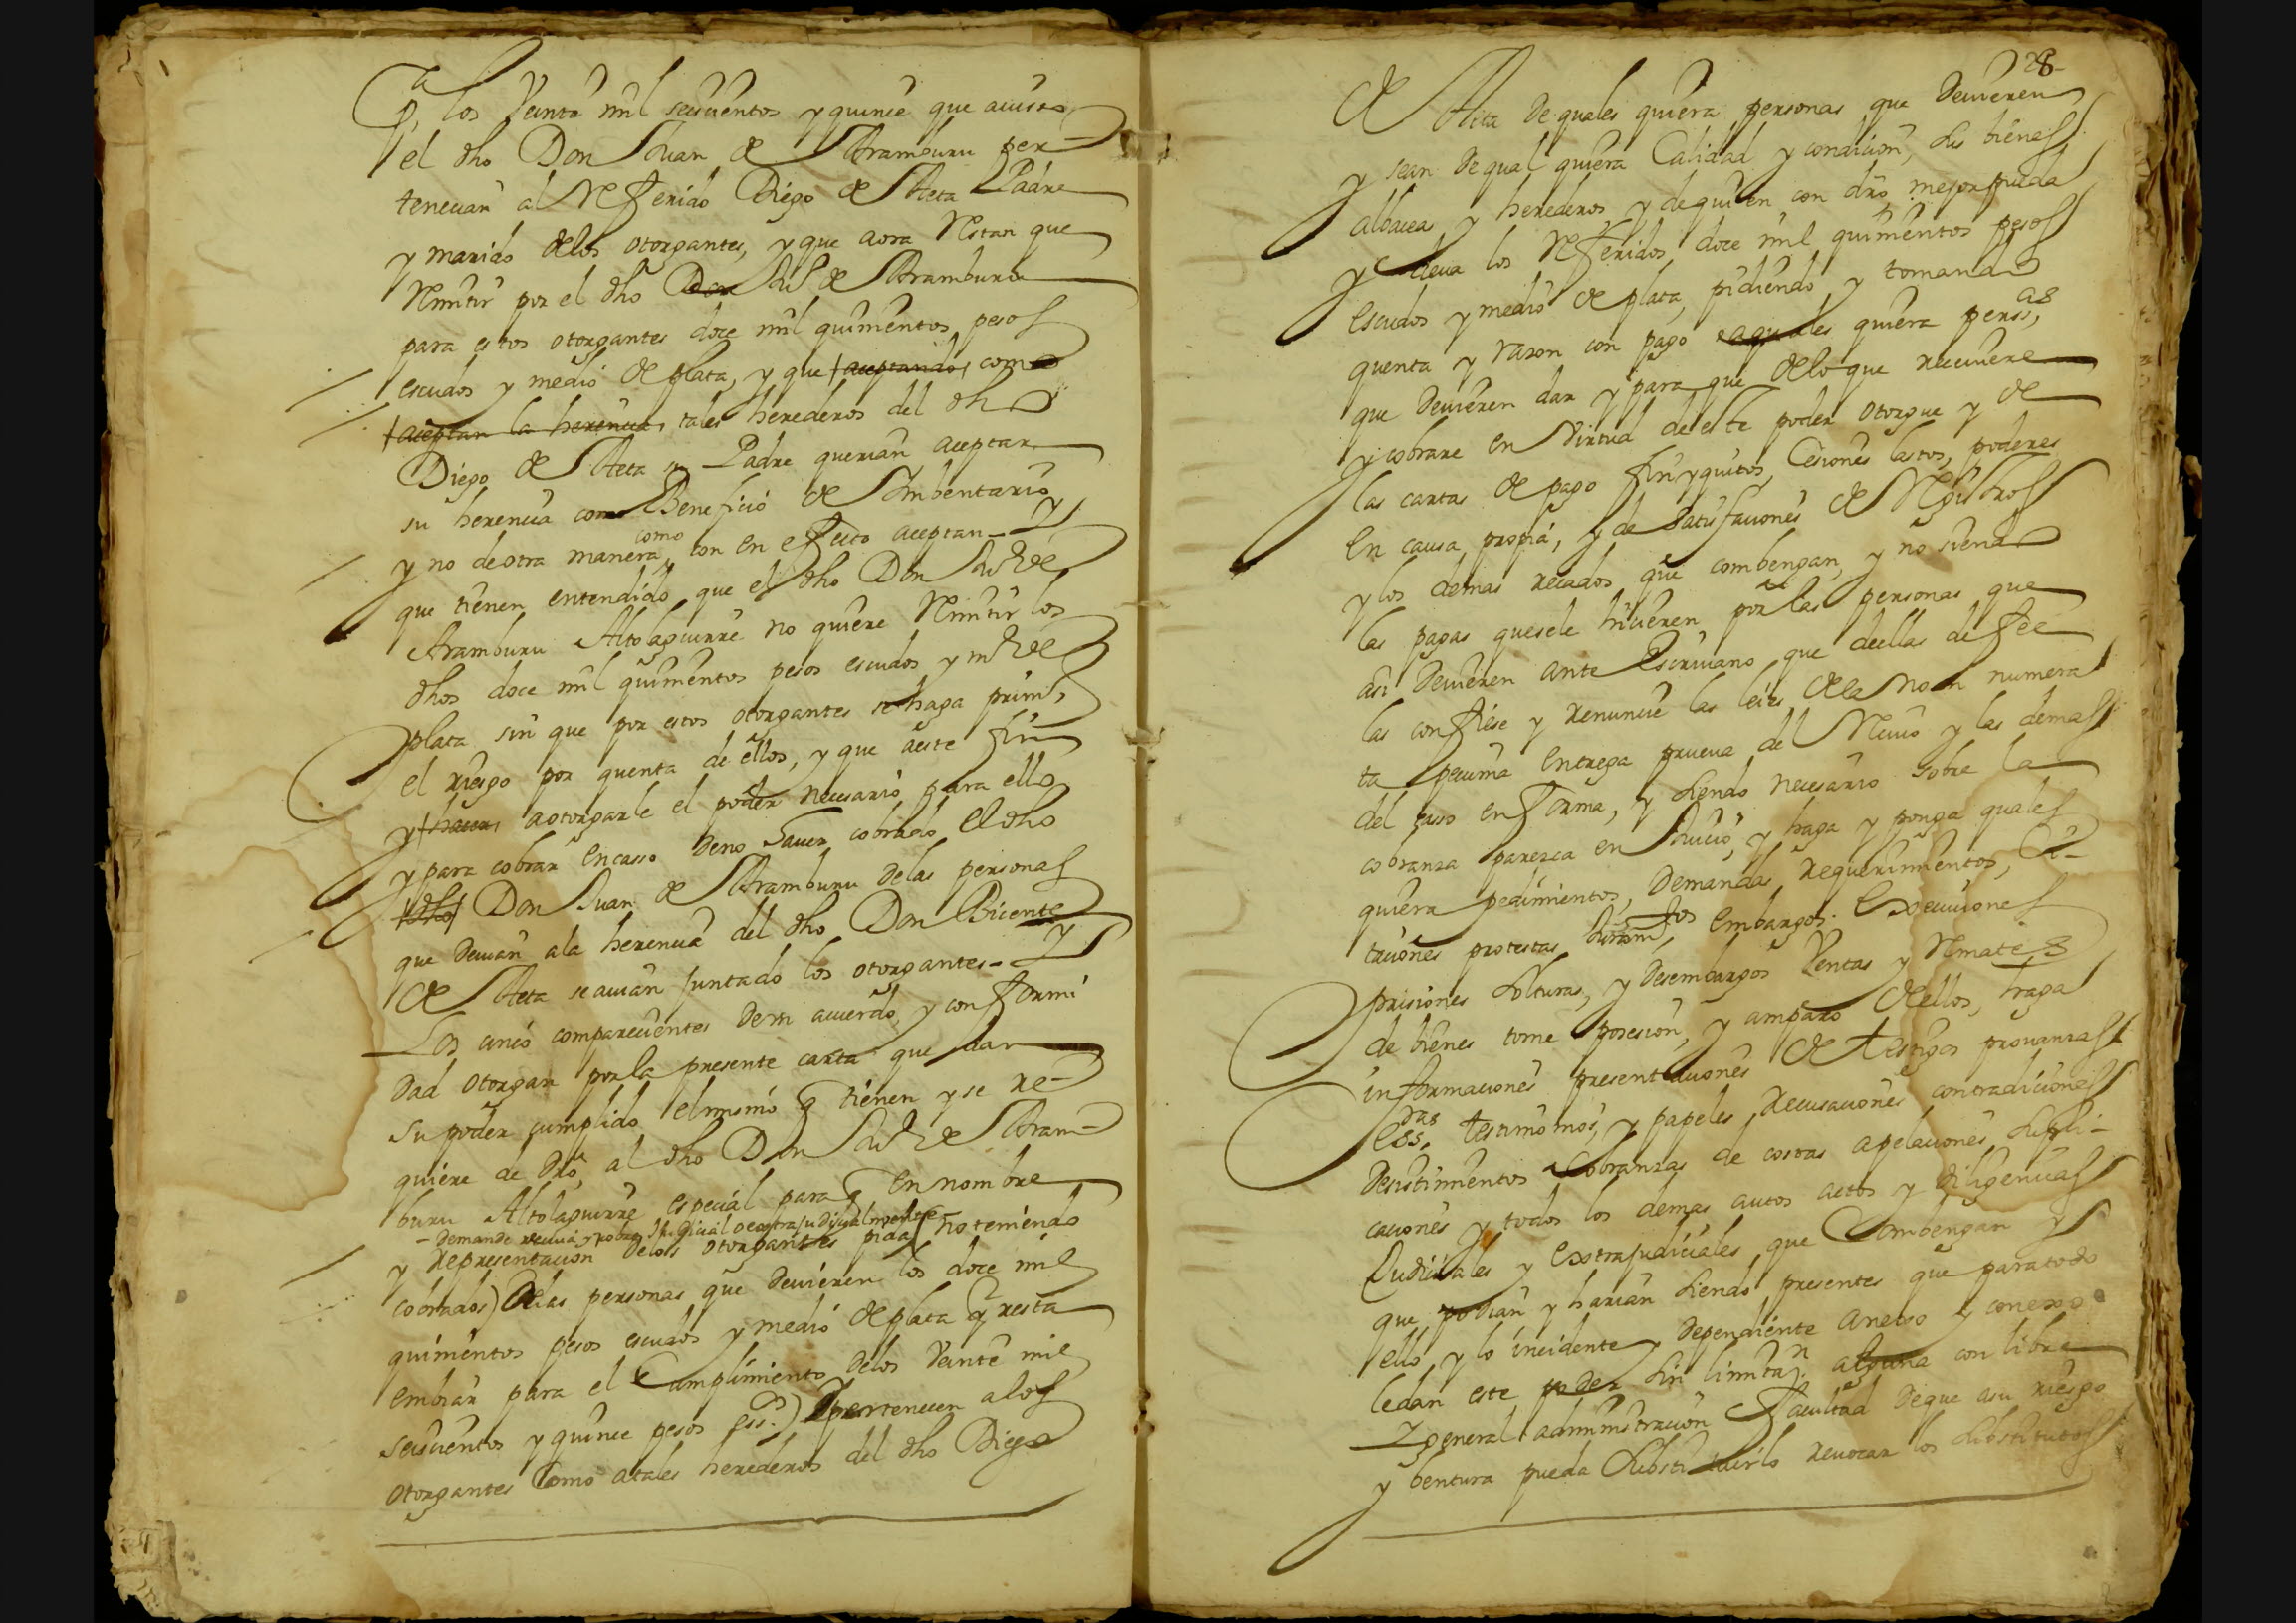 q los Veinte mil seiscientos y quince que auisa
el dho Don Juan de Aramburu per-
tenecian al Referido Diego de Aeta Padre
y marido delos otorgantes, y que aora Restan que
Remitir por el dho Don Ju° de Aramburu
para estos otorgantes doce mil quinientos pesos
escudos y medio de plata, y que aceptando como
aceptan la herencia tales herederos del dho
Diego de Aeta su Padre querian aceptar
su herencia con Beneficio de Imbentario
y no deotra manera como con en efecto aceptan - Y
que tienen entendido que el dho Don Ju° de
Aramburu Altolaguirre no quiere Remitir los
dhos doce mil quinientos pesos escudos y m° de
plata sin que por estos otorgantes se haga prim°
el riesgo por quenta de ellos, y que aeste fin
y hacer aotorgarle el poder necesario para ello
y para cobrar encasso deno hauer cobrado el dho
dho Don Juan de Aramburu delas personas
que deuian ala herencia del dho Don Bicente
de Aeta se auian juntado los otorgantes - Y
Los cinco comparecientes de un acuerdo y conformi
dad otorgan por la presente carta que dan
su poder cumplido el mismo q tienen y se re-
quiere de dro, al dho Don Ju° de Aram-
buru Altolaguirre especial para q en nombre
- demande reciua y cobre Judicial o extrajudizialmente
y Representacion delos otorgantes pida (no teniendo
cobrados) delas personas que deuieren los doce mil
quinientos pesos escudos y medio de plata q resta
embiar para el Cumplimiento delos Veinte mil
seiscientos y quince pesos ess.°) q pertenecen alos
otorgantes Como atales herederos del dho Diego
28
de Aeta de quales quiera personas que deuieren
y sean de qual quiera Calidad y condicion, sus bienes
albacea y herederos y de quien con dro mejor pueda
y deua los Referidos doce mil quinientos pesos
escudos y medio de plata, pidiendo y tomando
quenta y razon con pago aquales quiera perss.as
que deuieren dar y para que delo que reciuiere
y cobrare en Virtud deeste poder otorgue y de
las cartas de pago finyquitos, Cesiones lastos, poderes
en causa propia, y de satisfaciones de Registros
y los demas recados que combengan, y no siendo
las pagas quesele hicieren por las personas que
asi deuieren ante Escriuano que deellas de fee
las confiese y renuncie las leies dela Non numera
ta pecunia entrega prueua del Reciuo y las demas
del caso en forma, y siendo necesario sobre la
cobranza parezca en Juicio, y haga y ponga quales
quiera pedimientos, demandas, requerimientos, Ci-
taciones protestas Juramtos embargos. Execuciones
prisiones solturas, y desembargos Ventas y Remates
de bienes tome posesion, y amparo deellos, haga
informaciones presentaciones de testigos prouanzas
Ess.ras testimonios, y papeles, recusaciones contradiciones
desistimientos Cobranzas de costas apelaciones supli-
caciones y todos los demas autos actos y diligencias
Judiciales y extrajudiciales que Combengan y
que podian y harian siendo presentes que paratodo
ello y lo incidente y dependiente anexo y conexo
ledan este poder sin limitaz.n alguna con libre
Y general administracion facultad deque asu riesgo
y bentura pueda substituirlo reuocar los substitutos